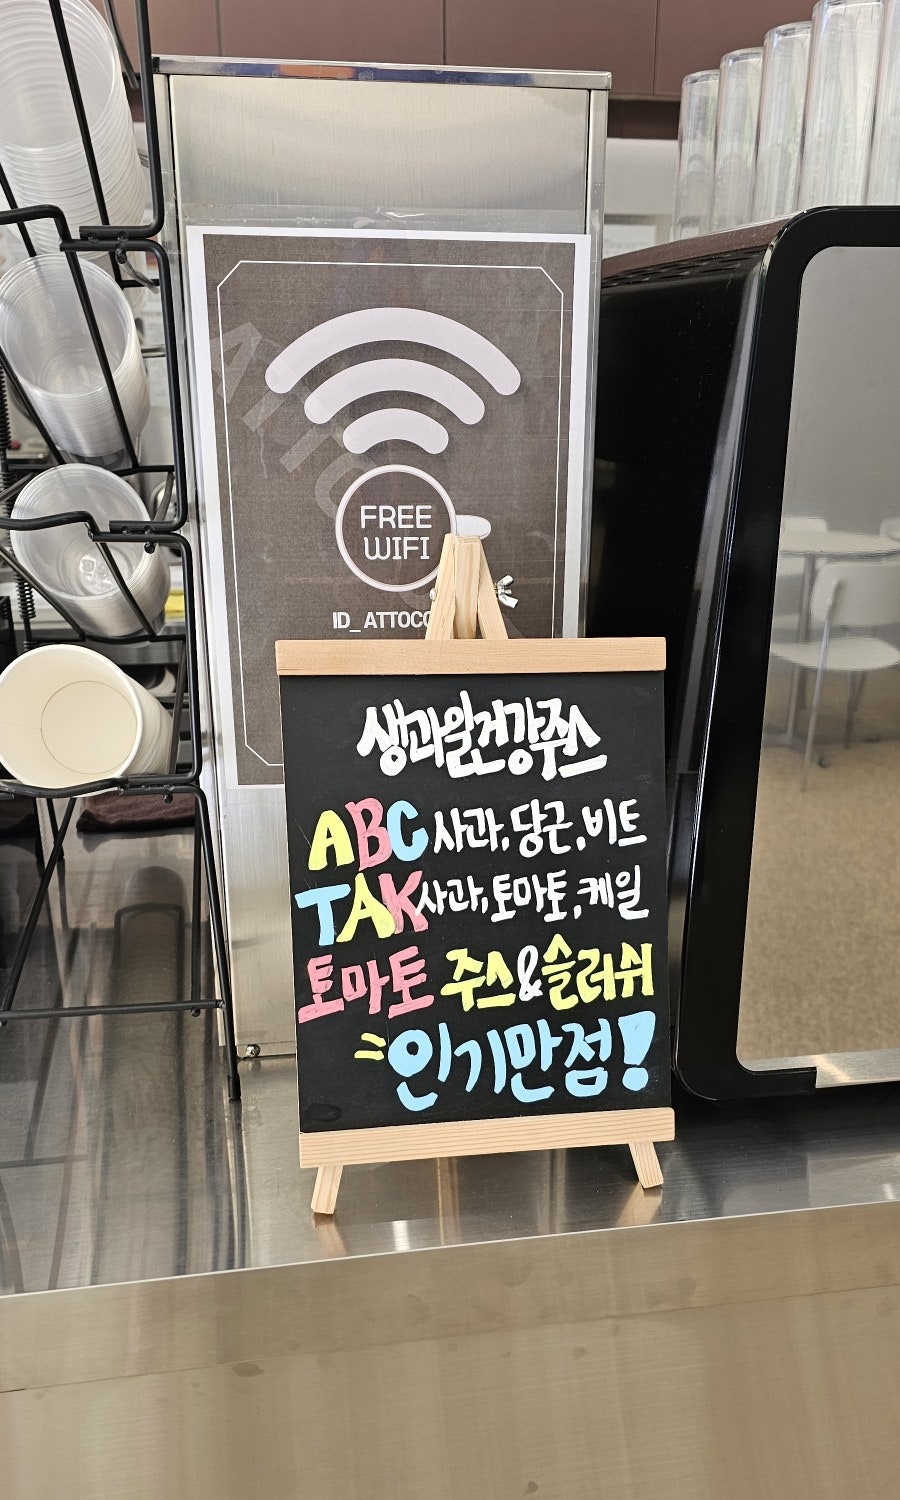 FREE
WIFI
생과일건강쥬스
ABC 사과, 당근, 비트
TAK 사과, 토마토, 케일
토마토 주스&슬러쉬
인기만점!